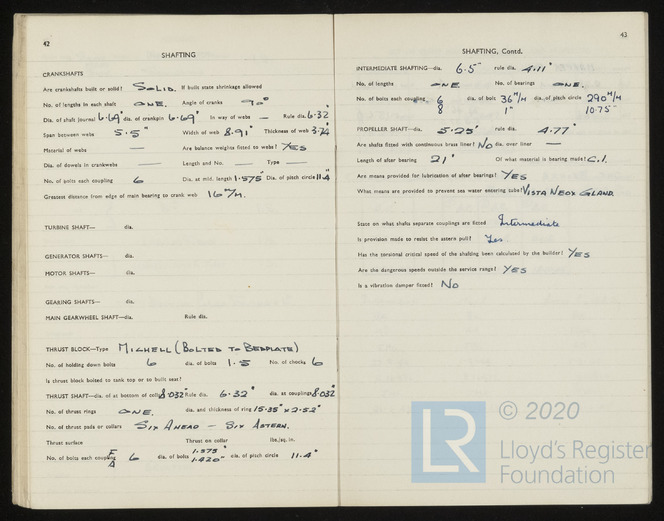 42
SHAFTING
CRANKSHAFTS
Are crankshafts built or solid? SOLID. If built state shrinkage allowed
No. of lengths in each shaft ONE. Angle of cranks 90°
Dia. of shaft journal 6.69" dia. of crankpin 6.69" In way of webs - Rule dia. 6.32"
Span between webs 5.5" Width of web 8.91" Thickness of web 3.74"
Material of webs — Are balance weights fitted to webs? YES
Dia. of dowels in crankwebs — Length and No. — Type —
No. of bolts each coupling 6 Dia. at mid. length 1.575" Dia. of pitch circle 11.4"
Greatest distance from edge of main bearing to crank web 16 M/M.
TURBINE SHAFT— dia.
GENERATOR SHAFTS— dia.
MOTOR SHAFTS— dia.
GEARING SHAFTS— dia.
MAIN GEARWHEEL SHAFT—dia. Rule dia.
THRUST BLOCK—Type MICHELL (BOLTED TO BEDPLATE)
No. of holding down bolts 6 dia. of bolts 1.5 No. of chocks 6
Is thrust block bolted to tank top or to built seat?
THRUST SHAFT—dia. at bottom of collar 8.032" Rule dia. 6.32" dia. at coupling 8.032"
No. of thrust rings ONE. dia. and thickness of ring 15.35" x 2.52"
No. of thrust pads or collars SIX AHEAD — SIX ASTERN.
Thrust surface Thrust on collar lbs./sq. in.
No. of bolts each coupling F A 6 dia. of bolts 1.575" 1.420" dia. of pitch circle 11.4"
43
SHAFTING, Contd.
INTERMEDIATE SHAFTING—dia. 6.5" rule dia. 4.11"
No. of lengths ONE. No. of bearings ONE.
No. of bolts each coupling 6 dia. of bolt 36 M/M dia. of pitch circle 290 M/M
8 1" 10.75"
PROPELLER SHAFT—dia. 5.25" rule dia. 4.77"
Are shafts fitted with continuous brass liner? NO dia. over liner —
Length of after bearing 21" Of what material is bearing made? C.I.
Are means provided for lubrication of after bearings? YES
What means are provided to prevent sea water entering tube? VISTA NEOX GLAND.
State on what shafts separate couplings are fitted Intermediate
Is provision made to resist the astern pull? Yes
Has the torsional critical speed of the shafting been calculated by the builder? YES
Are the dangerous speeds outside the service range? YES
Is a vibration damper fitted? NO
LR
© 2020
Lloyd's Register
Foundation